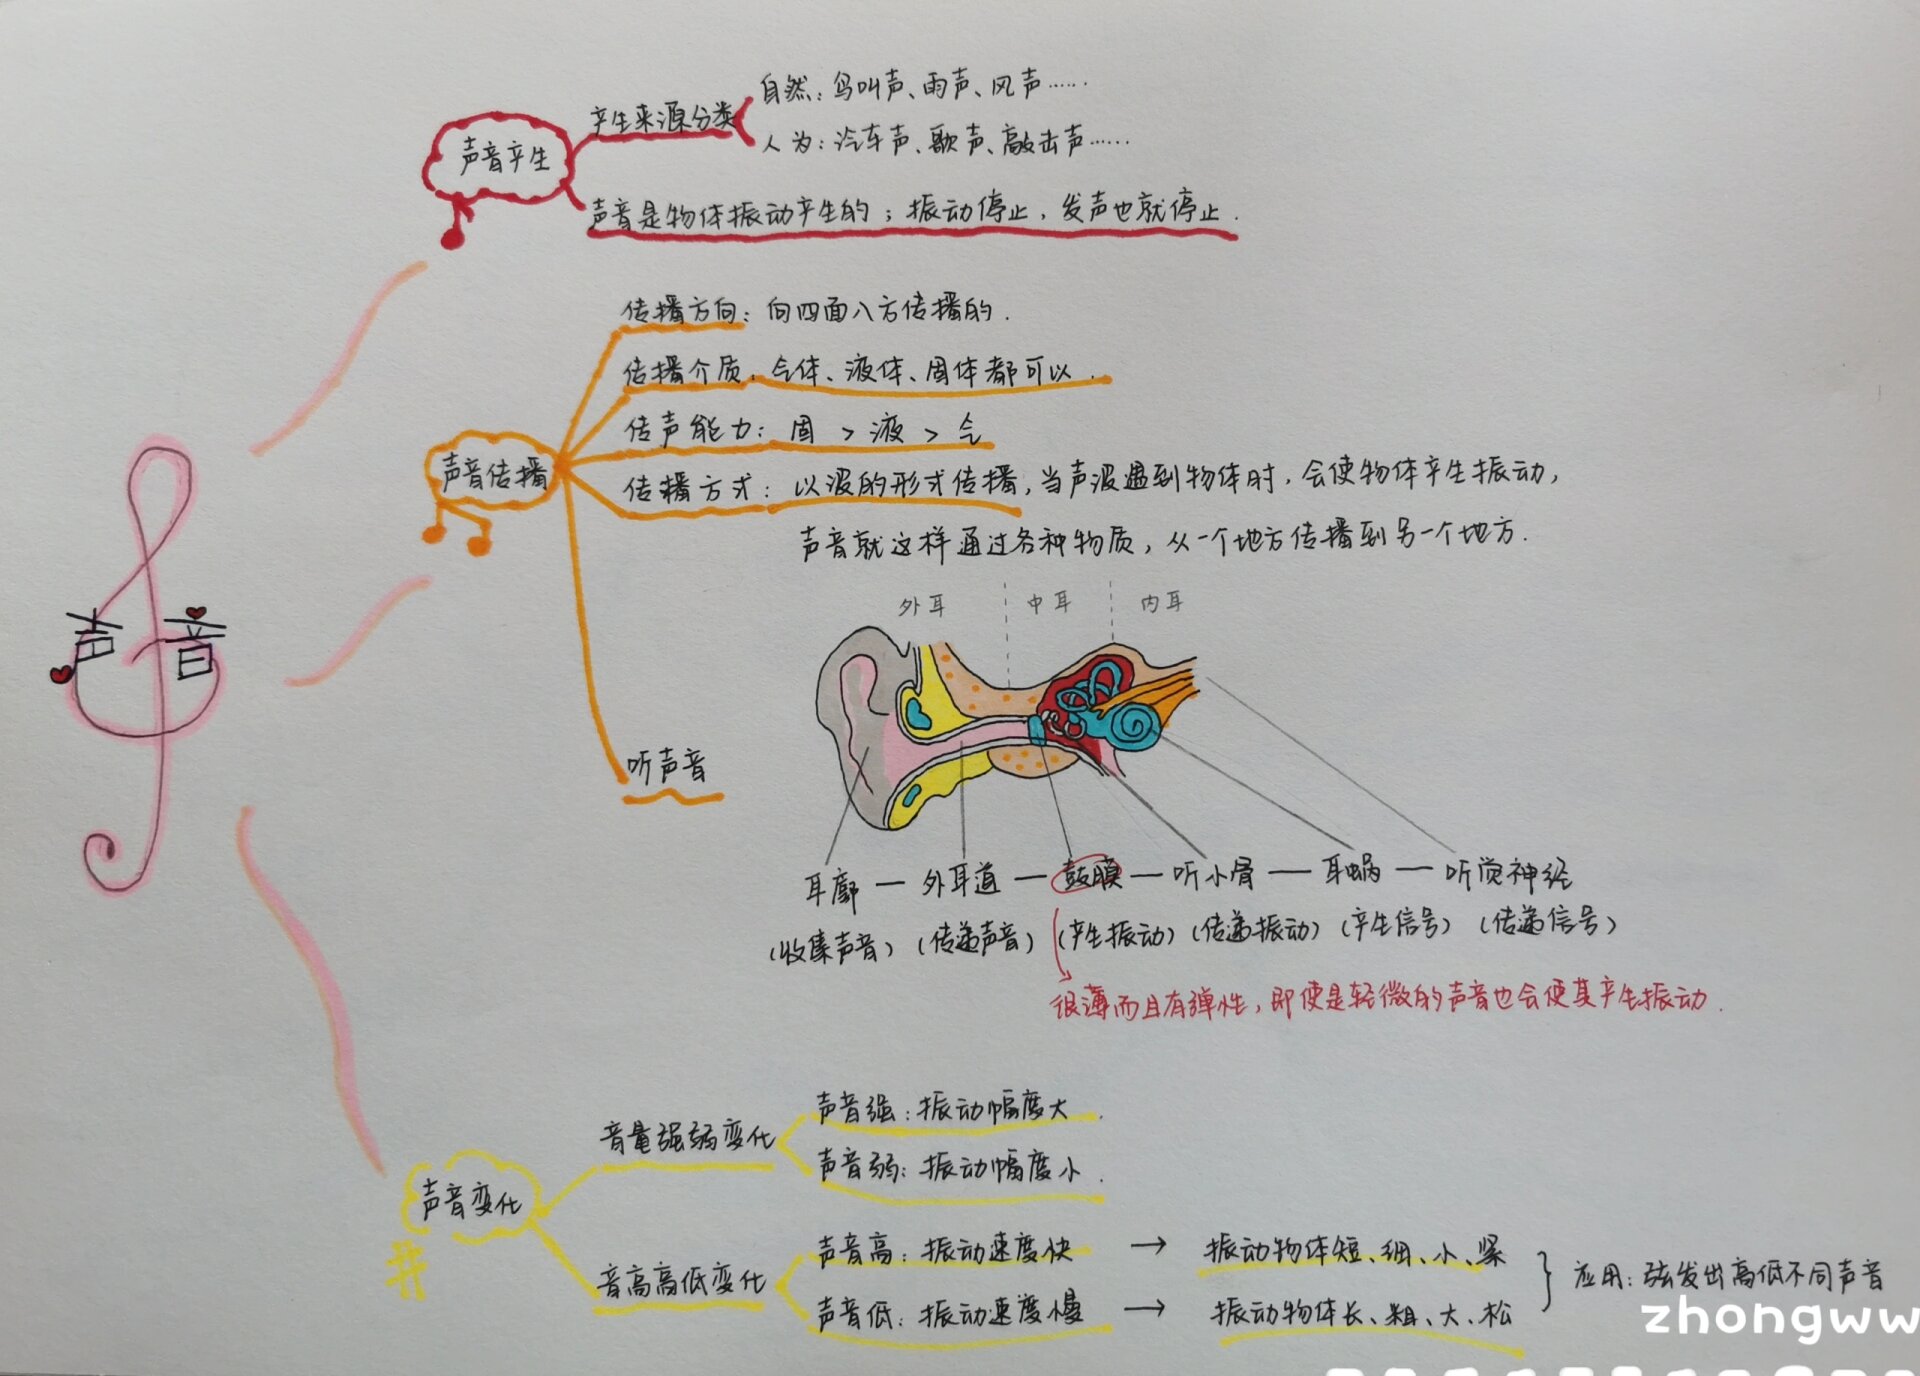 声音
声音产生
产生来源分类
自然：鸟叫声、雨声、风声……
人为：汽车声、歌声、敲击声……
声音是物体振动产生的；振动停止，发声也就停止.
声音传播
传播方向：向四面八方传播的.
传播介质：气体、液体、固体都可以.
传声能力：固 > 液 > 气
传播方式：以波的形式传播，当声波遇到物体时，会使物体产生振动，
声音就这样通过各种物质，从一个地方传播到另一个地方.
听声音
外耳 中耳 内耳
耳廓 — 外耳道 — 鼓膜 — 听小骨 — 耳蜗 — 听觉神经
(收集声音) (传递声音) (产生振动) (传递振动) (产生信号) (传递信号)
很薄而且有弹性，即使是轻微的声音也会使其产生振动.
声音变化
音量强弱变化
声音强：振动幅度大.
声音弱：振动幅度小.
音高高低变化
声音高：振动速度快 → 振动物体短、细、小、紧
声音低：振动速度慢 → 振动物体长、粗、大、松
应用：弦发出高低不同声音
zhongww